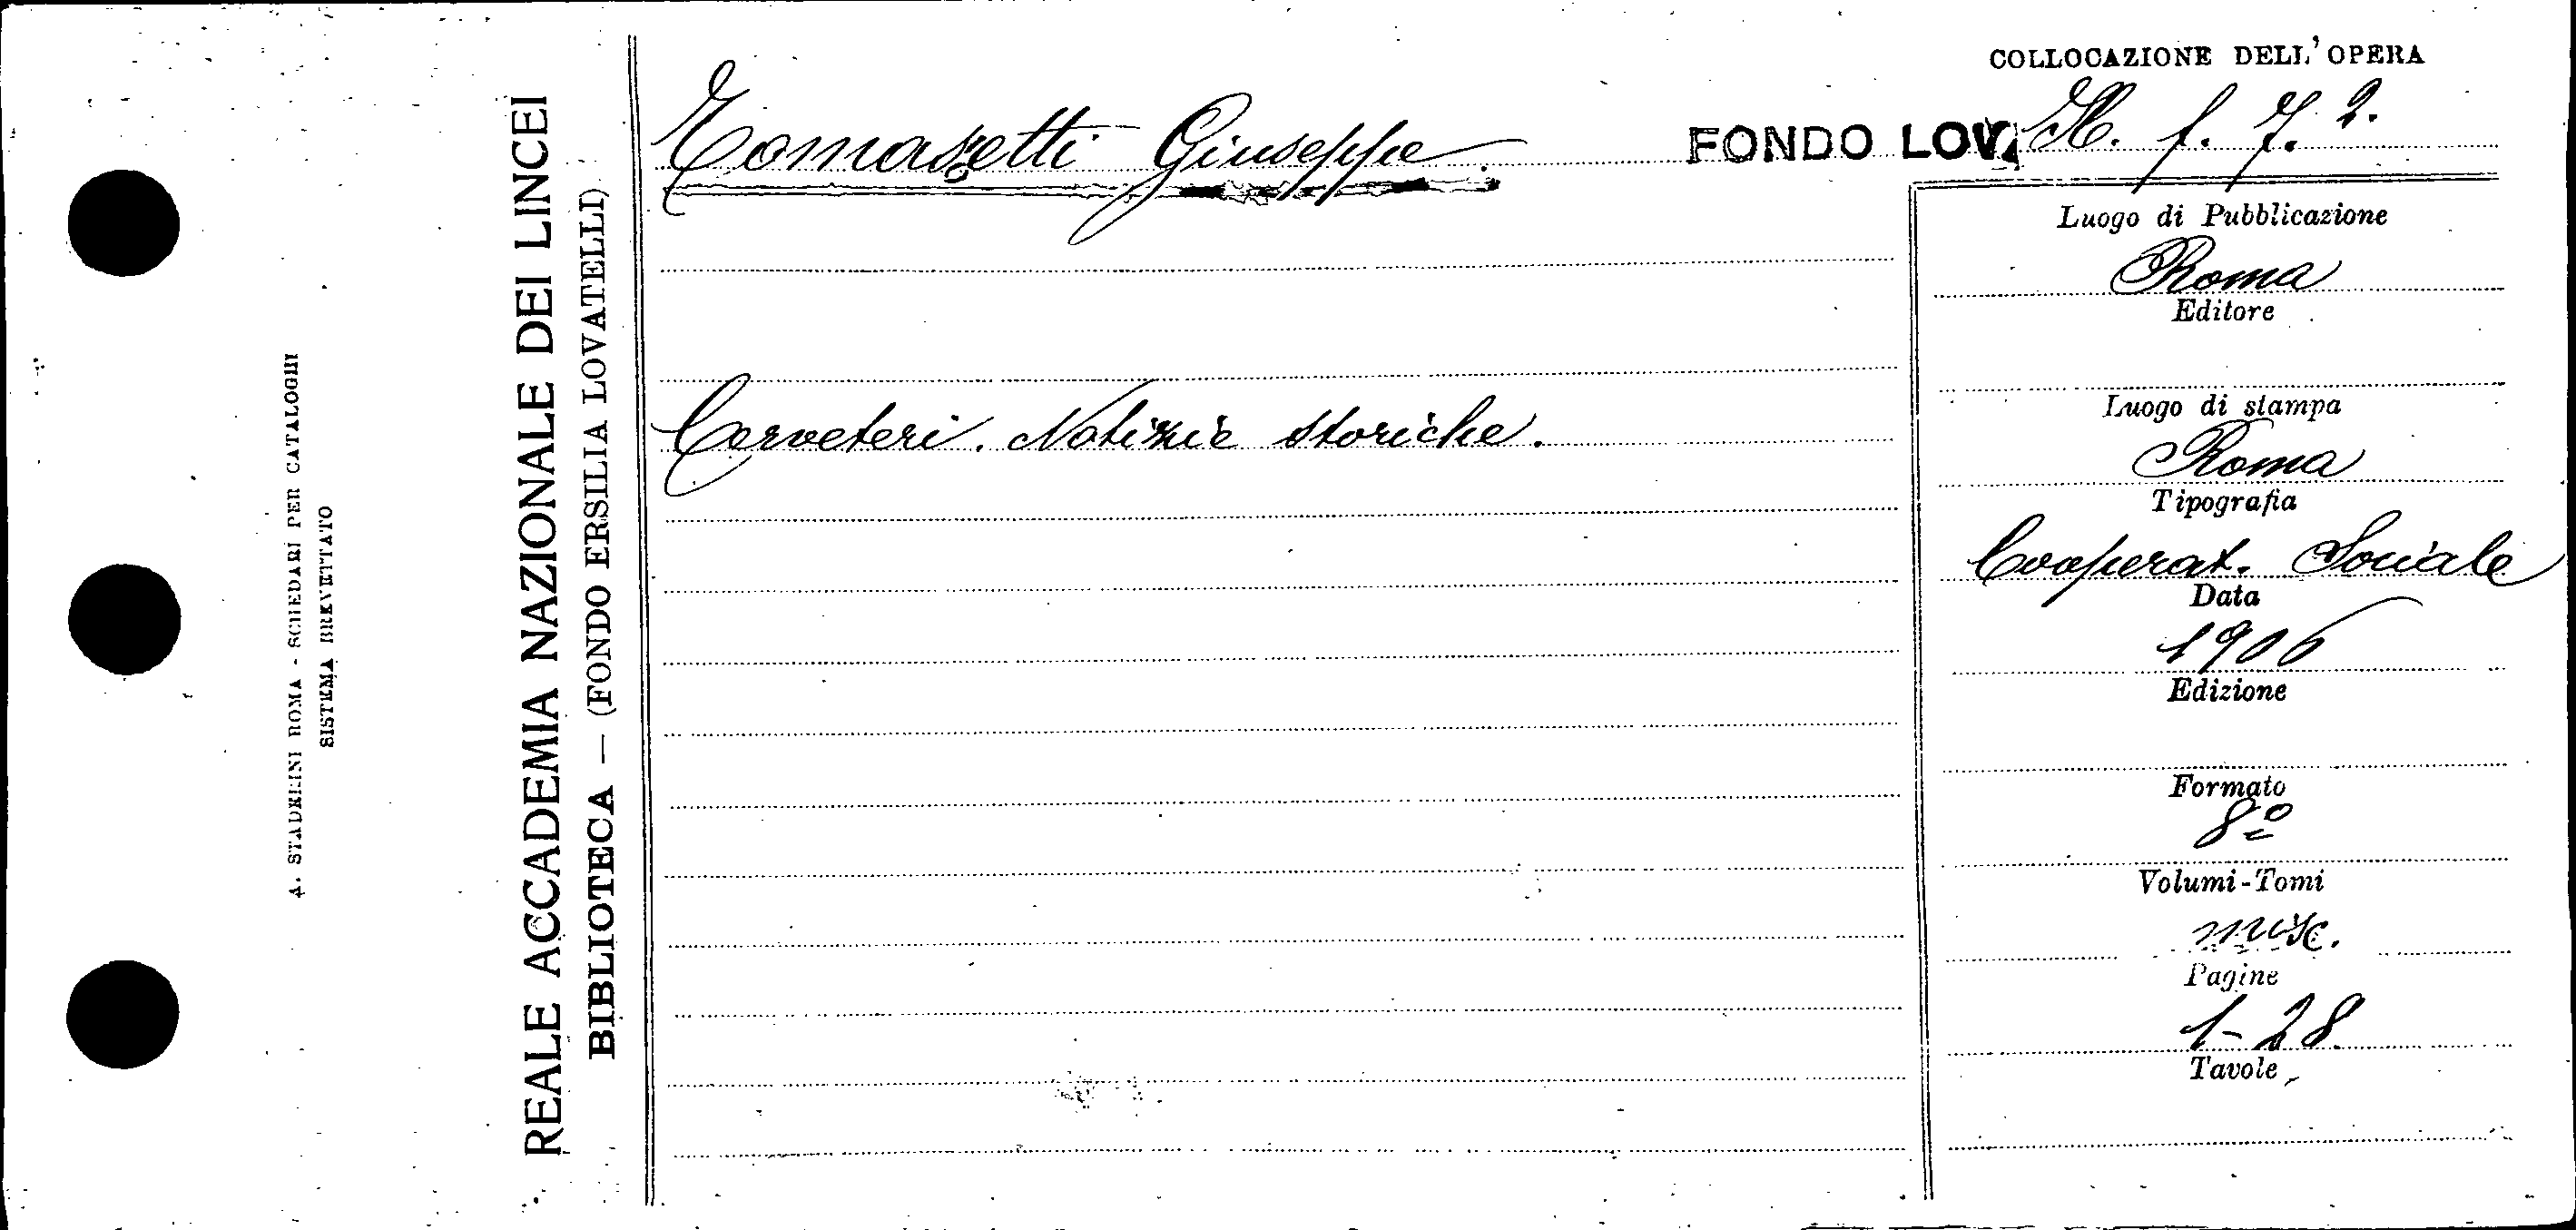 A. STADERINI ROMA - SCHEDARI PER CATALOGHI
SISTEMA BREVETTATO
REALE ACCADEMIA NAZIONALE DEI LINCEI
BIBLIOTECA — (FONDO ERSILIA LOVATELLI)
COLLOCAZIONE DELL'OPERA
Tomassetti Giuseppe
FONDO LOV. f. 7. 2.
Cerveteri. Notizie storiche.
Luogo di Pubblicazione
Roma
Editore
Luogo di stampa
Roma
Tipografia
Cooperat. Sociale
Data
1906
Edizione
Formato
8º
Volumi-Tomi
misc.
Pagine
1-28.
Tavole